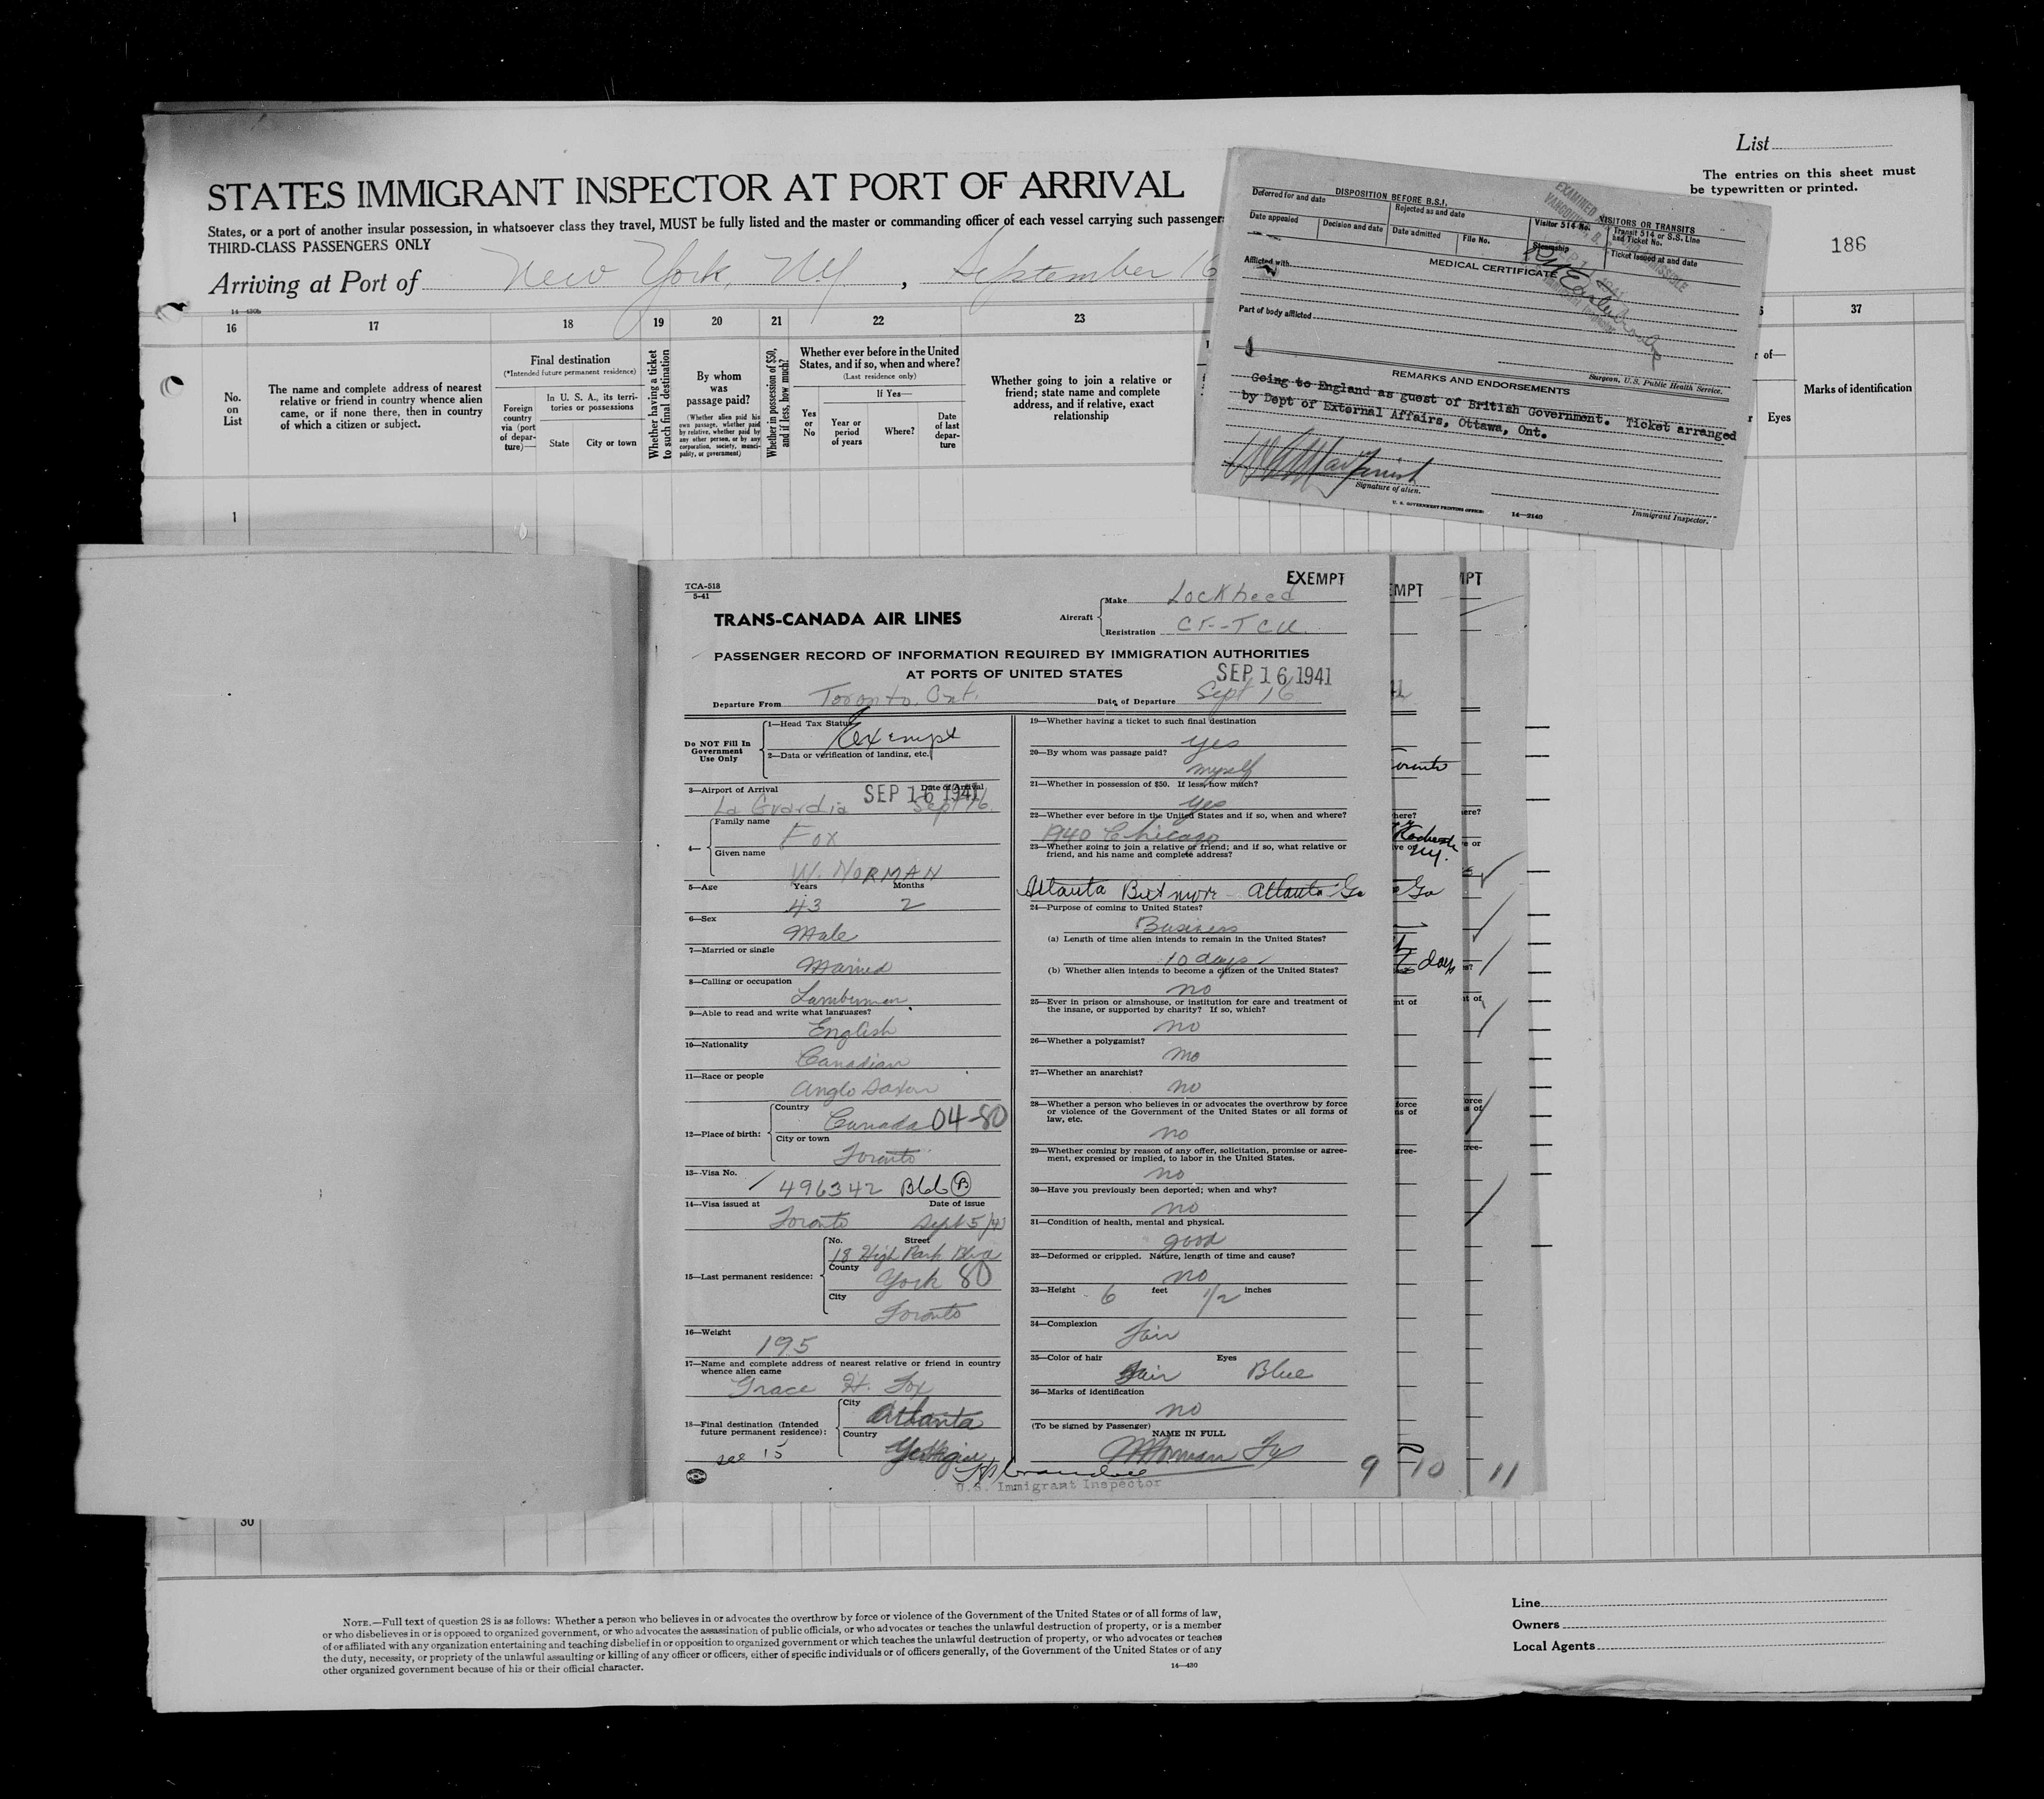 List
The entries on this sheet must
be typewritten or printed.
STATES IMMIGRANT INSPECTOR AT PORT OF ARRIVAL
States, or a port of another insular possession, in whatsoever class they travel, MUST be fully listed and the master or commanding officer of each vessel carrying such passenger
THIRD-CLASS PASSENGERS ONLY
186
Arriving at Port of New York, N.Y. , September 16
14—430b
16 17 18 19 20 21 22 23 37
No. on List
The name and complete address of nearest
relative or friend in country whence alien
came, or if none there, then in country
of which a citizen or subject.
Final destination
(*Intended future permanent residence)
Foreign country via (port of departure)—
In U. S. A., its terri-
tories or possessions
State City or town
Whether having a ticket
to such final destination
By whom
was
passage paid?
(Whether alien paid his
own passage, whether paid
by relative, whether paid by
any other person, or by any
corporation, society, munici-
pality, or government)
Whether in possession of $50,
and if less, how much?
Whether ever before in the United
States, and if so, when and where?
(Last residence only)
If Yes—
Yes or No
Year or period of years
Where?
Date of last depar-ture
Whether going to join a relative or
friend; state name and complete
address, and if relative, exact
relationship
of—
Eyes
Marks of identification
1
DISPOSITION BEFORE B.S.I.
Deferred for and date
Rejected as and date
Date appealed
Decision and date
Date admitted
File No.
VISITORS OR TRANSITS
Visitor 514 No.
Transit 514 or S.S. Line
and Ticket No.
Steamship
Ticket issued at and date
EXAMINED
VANCOUVER, B.
MEDICAL CERTIFICATE
Afflicted with
Part of body afflicted
Surgeon, U.S. Public Health Service.
REMARKS AND ENDORSEMENTS
Going to England as guest of British Government. Ticket arranged
by Dept of External Affairs, Ottawa, Ont.
Signature of alien.
U. S. GOVERNMENT PRINTING OFFICE
14—2140
Immigrant Inspector.
TCA-518
5-41
EXEMPT
TRANS-CANADA AIR LINES
Aircraft
Make Lockheed
Registration CF-TCU
PASSENGER RECORD OF INFORMATION REQUIRED BY IMMIGRATION AUTHORITIES
AT PORTS OF UNITED STATES
SEP 16 1941
Departure From Toronto, Ont. Date of Departure Sept 16
Do NOT Fill In
Government
Use Only
1—Head Tax Status
Exempt
2—Data or verification of landing, etc.
3—Airport of Arrival Date of Arrival
La Guardia SEP 16 1941 Sept 16.
4—
Family name
Fox
Given name
W. NORMAN
5—Age Years Months
43 2
6—Sex
Male
7—Married or single
Married
8—Calling or occupation
Lumberman
9—Able to read and write what languages?
English
10—Nationality
Canadian
11—Race or people
Anglo Saxon
12—Place of birth:
Country
Canada 04-80
City or town
Toronto
13—Visa No.
496342 B66 B
14—Visa issued at Date of issue
Toronto Sept 5/41
15—Last permanent residence:
No. Street
18 High Park Blvd
County
York 80
City
Toronto
16—Weight
195
17—Name and complete address of nearest relative or friend in country
whence alien came
Grace H. Fox
18—Final destination (Intended
future permanent residence):
City
Atlanta
Country
Georgia
see 15
19—Whether having a ticket to such final destination
yes
20—By whom was passage paid?
myself
21—Whether in possession of $50. If less, how much?
yes
22—Whether ever before in the United States and if so, when and where?
1940 Chicago
23—Whether going to join a relative or friend; and if so, what relative or
friend, and his name and complete address?
Atlanta Biltmore Atlanta Ga
24—Purpose of coming to United States?
Business
(a) Length of time alien intends to remain in the United States?
10 days
(b) Whether alien intends to become a citizen of the United States?
no
25—Ever in prison or almshouse, or institution for care and treatment of
the insane, or supported by charity? If so, which?
no
26—Whether a polygamist?
no
27—Whether an anarchist?
no
28—Whether a person who believes in or advocates the overthrow by force
or violence of the Government of the United States or all forms of
law, etc.
no
29—Whether coming by reason of any offer, solicitation, promise or agree-
ment, expressed or implied, to labor in the United States.
no
30—Have you previously been deported; when and why?
no
31—Condition of health, mental and physical.
good
32—Deformed or crippled. Nature, length of time and cause?
no
33—Height 6 feet 1/2 inches
34—Complexion
Fair
35—Color of hair Eyes
Fair Blue
36—Marks of identification
no
(To be signed by Passenger)
NAME IN FULL
W Norman Fox
U.S. Immigrant Inspector
9 10 11
30
NOTE.—Full text of question 28 is as follows: Whether a person who believes in or advocates the overthrow by force or violence of the Government of the United States or of all forms of law,
or who disbelieves in or is opposed to organized government, or who advocates the assassination of public officials, or who advocates or teaches the unlawful destruction of property, or is a member
of or affiliated with any organization entertaining and teaching disbelief in or opposition to organized government or which teaches the unlawful destruction of property, or who advocates or teaches
the duty, necessity, or propriety of the unlawful assaulting or killing of any officer or officers, either of specific individuals or of officers generally, of the Government of the United States or of any
other organized government because of his or their official character.
14—430
Line
Owners
Local Agents